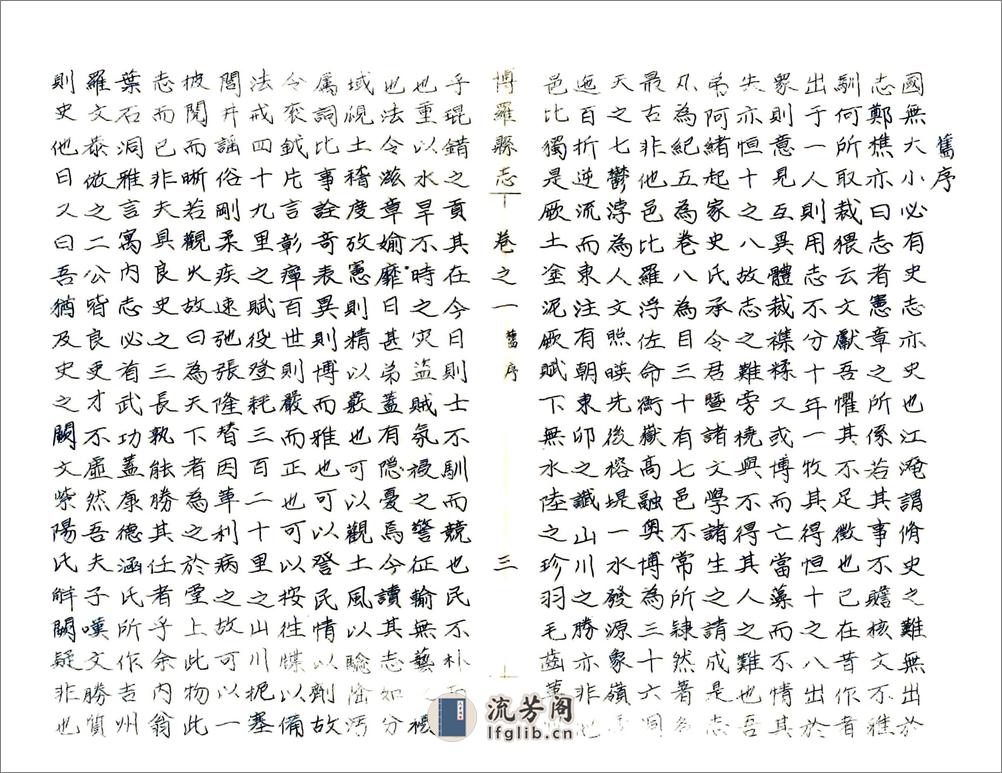 舊序
國無大小必有史志亦史也江淹謂脩史之難無出於
志鄭樵亦曰志者憲章之所係若其事不贍核文不雅
馴何所取裁猥云文獻吾懼其不足徵也已在昔作者
出于一人則用志不分十年一牧其得恒十之八出於
眾則意見互異體裁襍糅又或博而亡當藻而不情其
失亦恒十之八故志之難旁撓與不得其人之難也吾
弟阿緒起家史氏承令君暨諸文學諸生之請成是志
凡為紀五為卷八為目三十有七邑不常所隸然著為
最古非他邑比羅浮佐命衡嶽高融奧博為三十六洞
天之七鬱浡為人文煦暎先後榕堤一水發源象嶺
迤百折逆流而東注有朝東卯之讖山川之勝亦非他
邑比獨是厥土塗泥厥賦下無水陸之珍羽毛齒革
博羅縣志 卷之一 舊序 三
乎琨錯之貢其在今日則士不馴而競也民不朴
也重以水旱不時之灾盜賊氛祲之警征輸無藝
也法令滋章媮靡日甚弟蓋有隱憂焉今讀其志如分
域視土稽度攷憲則精以覈也可以觀土風以驗窳污
属詞比事詮奇表異則博而雅也可以登民情以劑故
令衮鉞片言彰癉百世則嚴而正也可以按往牒以備
法戒四十九里之賦役登耗三百二十里之山川扼塞
閭井謡俗剛柔疾速弛張隆替因革利病之故可以一
披閱而晰若觀火故曰為天下者為之於堂上此物此
志而已非夫具良史之三長孰能勝其任者乎余內翁
葉石洞雅言寓內志必首武功蓋康德涵氏所作吉州
羅文泰倣之二公皆良史才不虛然吾夫子嘆文勝質
則史他日又曰吾猶及史之闕文紫陽氏觧闕疑非也
流芳阁
lfglib.cn